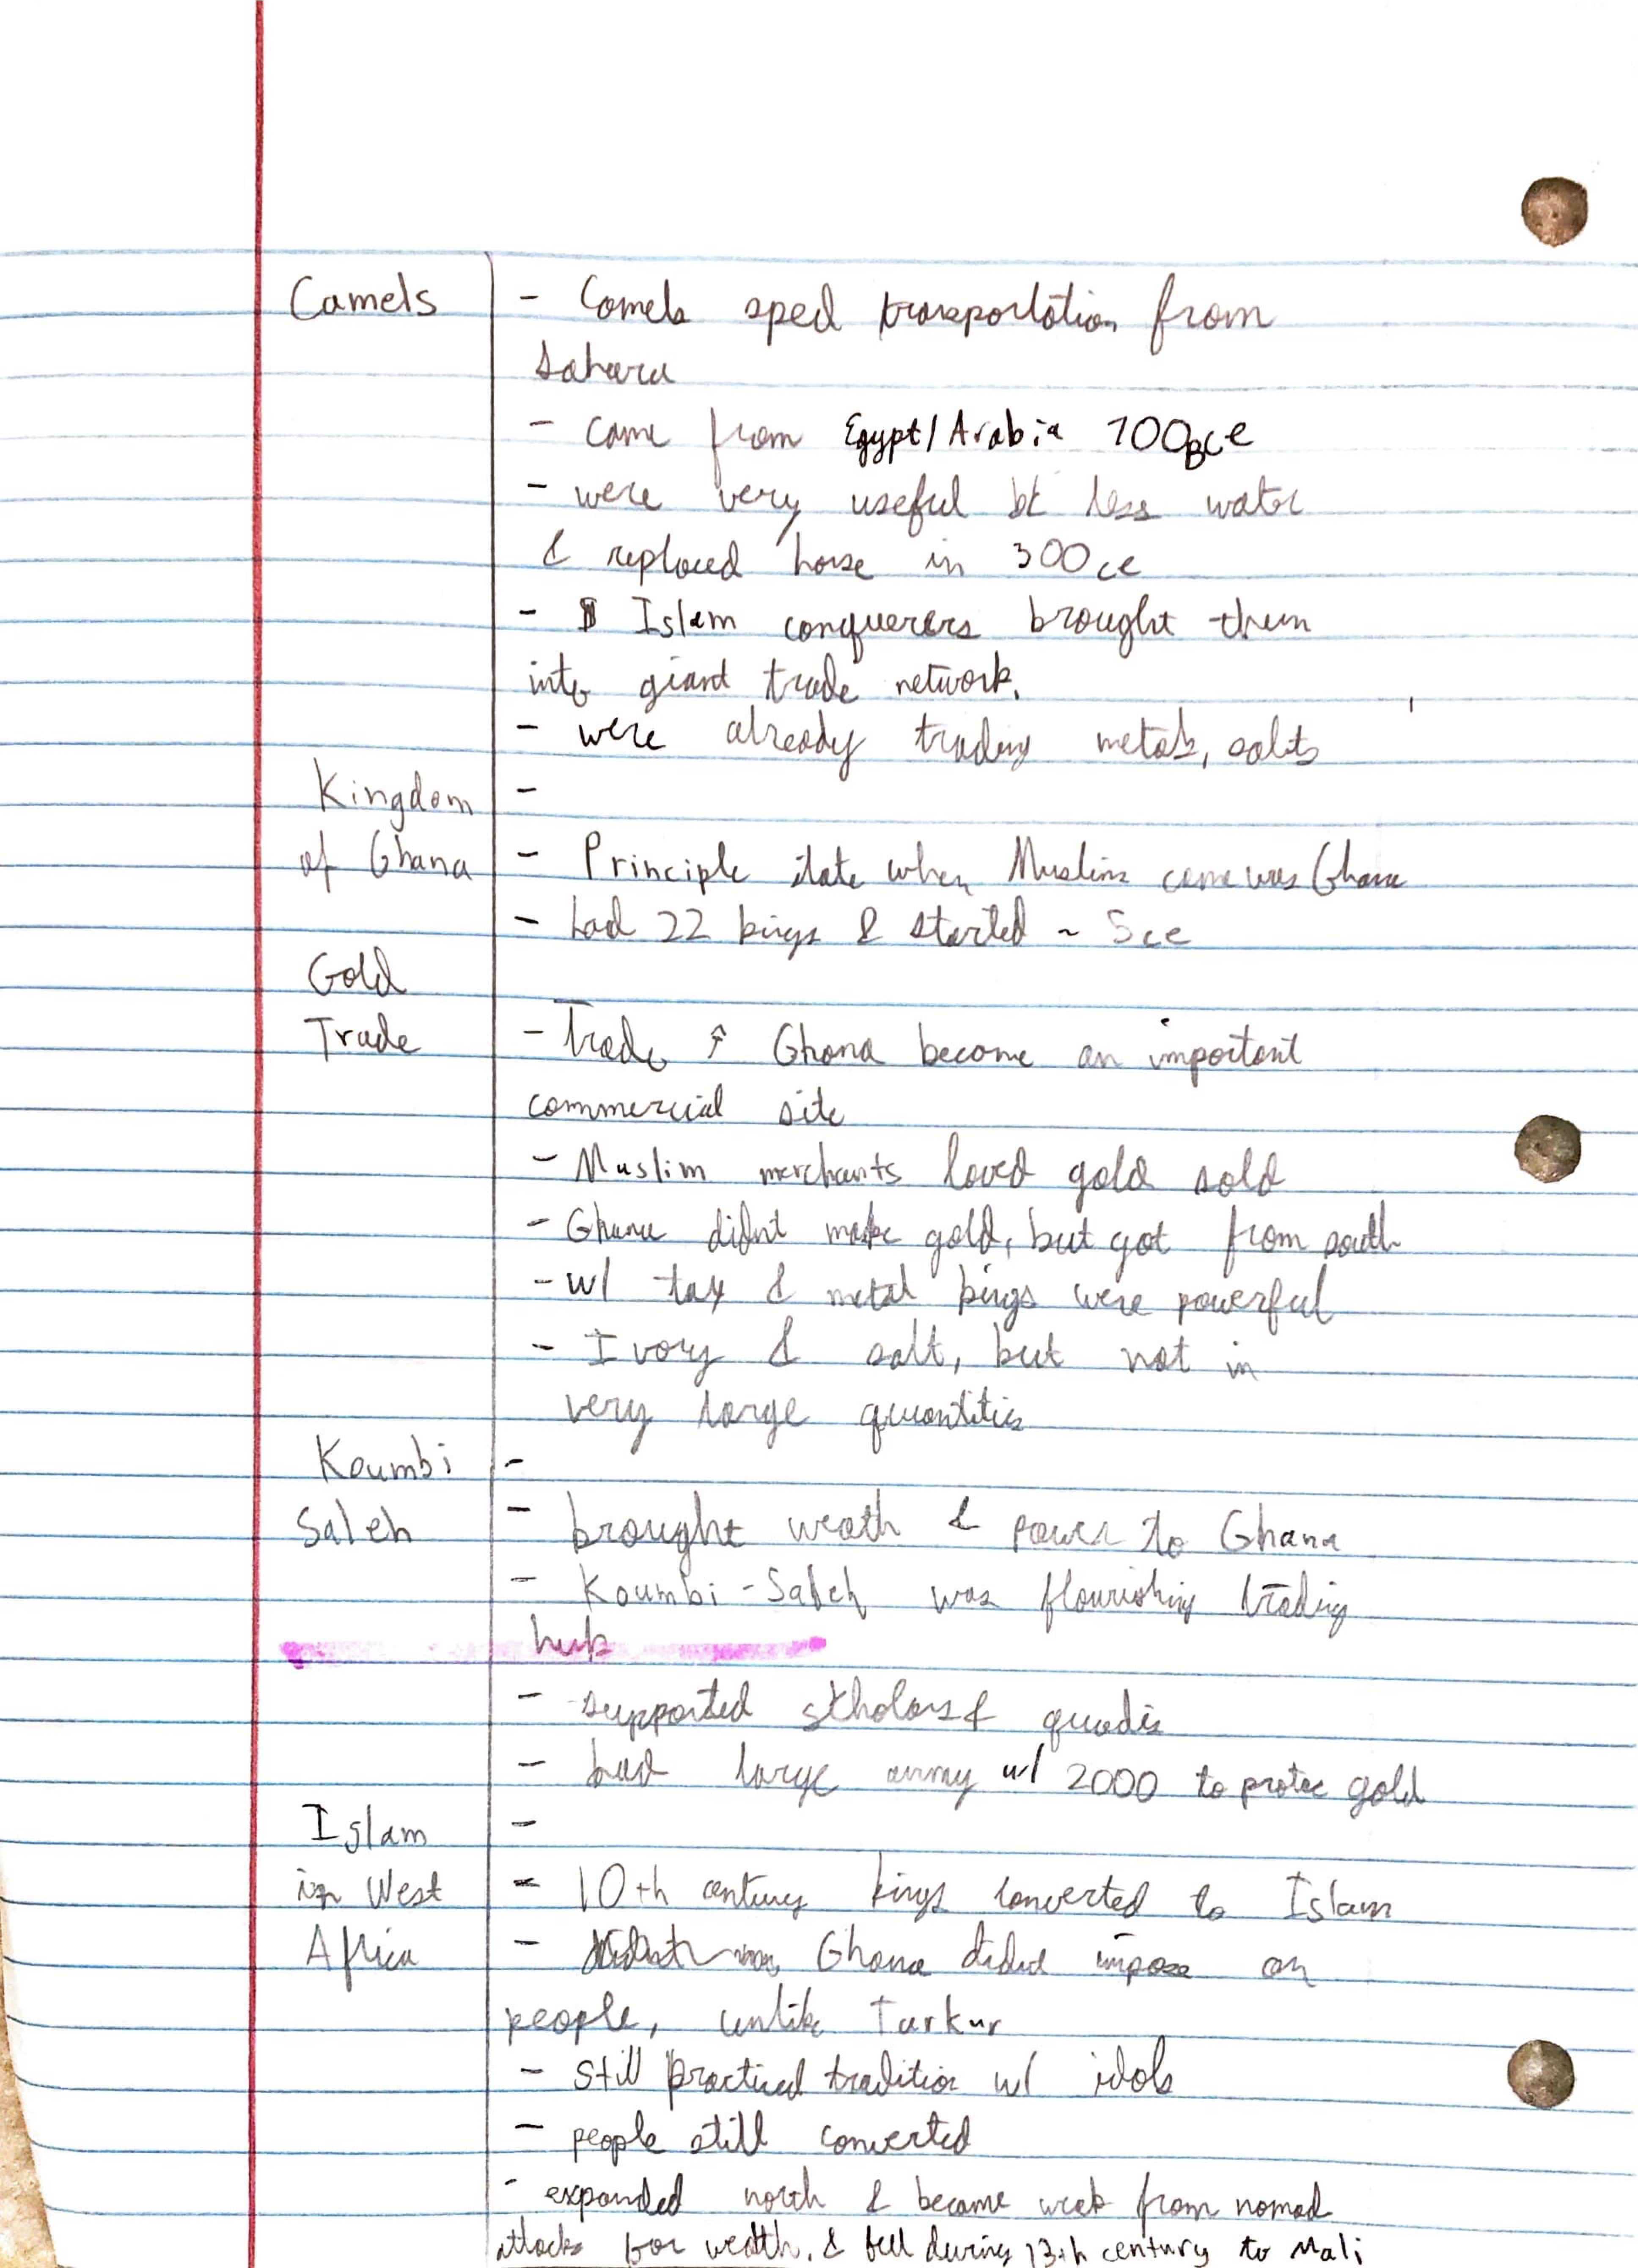 Camels - Camels sped transportation from
Sahara
- came from Egypt/Arabia 100BCE
- were very useful bc less water
& replaced horse in 300 ce
- Islam conquerers brought them
into giant trade network.
- were already trading metals, salts
Kingdom -
of Ghana - Principle state when Muslims came was Ghana
- had 22 kings & started ~ 5ce
Gold
Trade - Trade ↑ Ghana become an important
commercial site
- Muslim merchants loved gold sold
- Ghana didnt make gold, but got from south
- w/ tax & metal kings were powerful
- Ivory & salt, but not in
very large quantities
Koumbi -
Saleh - brought weath & power to Ghana
- Koumbi-Saleh was flourishing trading
hub
- supported scholars & quadis
- had large army w/ 2000 to protec gold
Islam -
in West - 10th century kings converted to Islam
Africa - Ghana didnt impose on
people, unlike Tarkur
- still practiced tradition w/ idols
- people still converted
- expanded north & became weak from nomad
attacks for wealth, & fell during 13th century to Mali